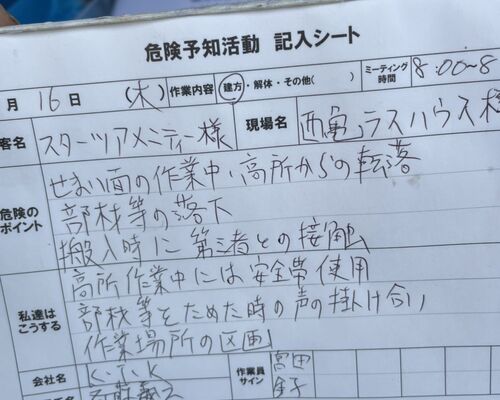 危険予知活動 記入シート
月 16 日 (木) 作業内容 建方・解体・その他( ) ミーティング時間 8:00~8
客名 スターツアメニティー様 現場名 西亀ラスハウス様
危険のポイント せまい面の作業中・高所からの転落
部材等の落下
搬入時に第三者との接触
私達はこうする 高所作業中には安全帯使用
部材等とためた時の声の掛け合い
作業場所の区画
会社名 K.T.K 作業員サイン 宮田
金子